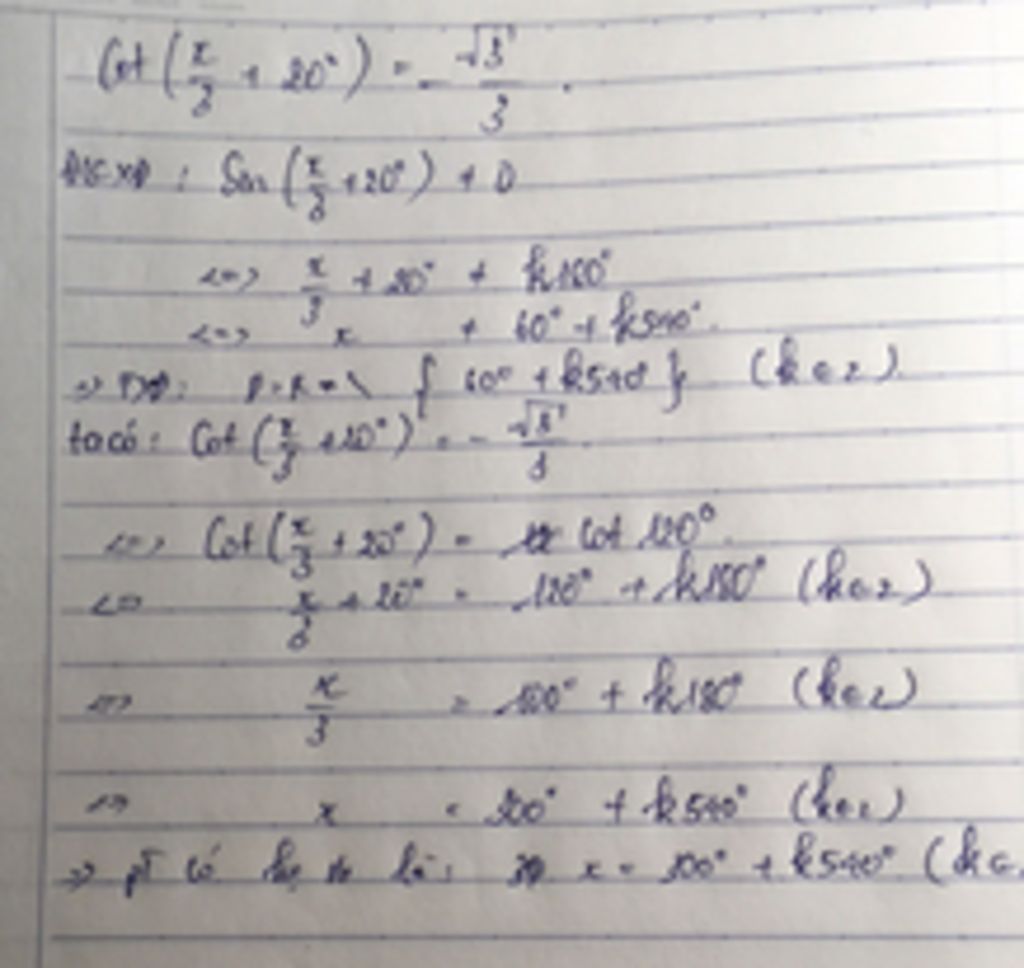 Cot (x/3 + 20°) = - √3/3.
ĐKXĐ : Sin (x/3 + 20°) ≠ 0
<=> x/3 + 20° ≠ k180°
<=> x ≠ 60° + k540°.
=> TXĐ: D = R \ { 60° + k540° } (k ∈ Z)
ta có : Cot (x/3 + 20°) = - √3/3
<=> Cot (x/3 + 20°) = Cot 120°.
<=> x/3 + 20° = 120° + k180° (k ∈ Z)
=> x/3 = 100° + k180° (k ∈ Z)
=> x = 300° + k540° (k ∈ Z)
=> pT có họ no là : x = 300° + k540° (k ∈